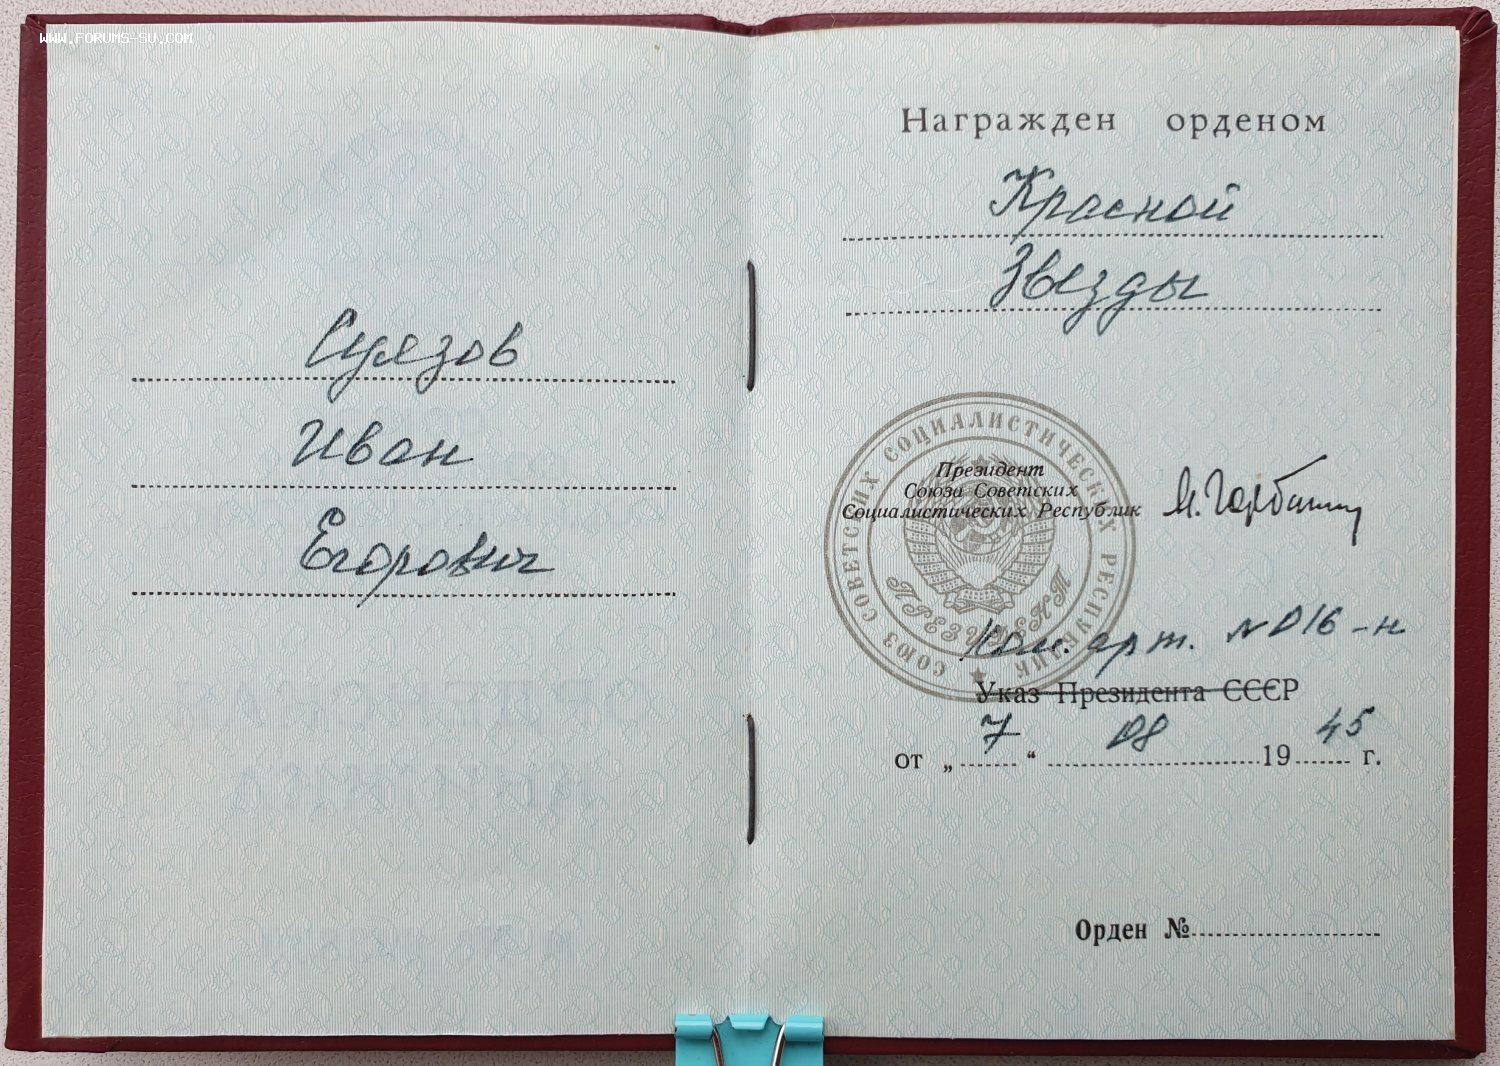 WWW.FORUMS-SU.COM
Суязов
Иван
Егорович
Награжден орденом
Красной
Звезды
СОЮЗ СОВЕТСКИХ СОЦИАЛИСТИЧЕСКИХ РЕСПУБЛИК
Президент
Союза Советских
Социалистических Республик
ПРЕЗИДЕНТ
арт. № 016-н
Указ Президента СССР
от „ 7 “ 08 19 45 г.
Орден №